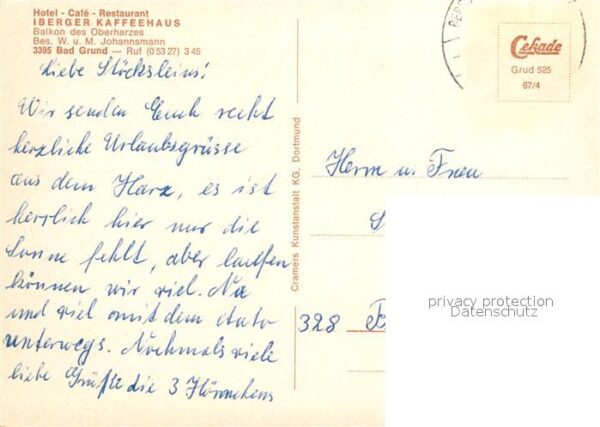 Hotel - Café - Restaurant
IBERGER KAFFEEHAUS
Balkon des Oberharzes
Bes. W. u. M. Johannsmann
3395 Bad Grund — Ruf (0 53 27) 3 45
Liebe Stöcksleins!
Wir senden Euch recht
herzliche Urlaubsgrüsse
aus dem Harz, es ist
herrlich hier nur die
Sonne fehlt, aber laufen
können wir viel. Na
und viel mit dem Auto
unterwegs. Nochmals viele
liebe Grüße die 3
Cramers Kunstanstalt KG, Dortmund
Cekade
Grud 525
67/4
Herrn u. Frau
S
328
privacy protection
Datenschutz